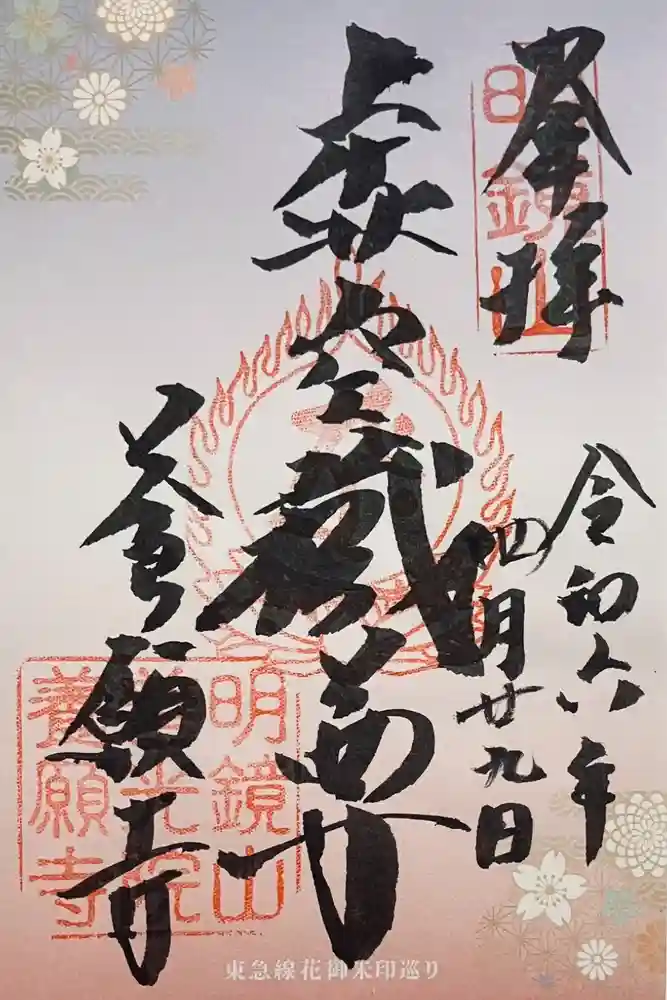 奉拝
日鏡山
令和六年
四月廿九日
虚空蔵尊
養願寺
明鏡山
善光院
養願寺
東急線花御朱印巡り